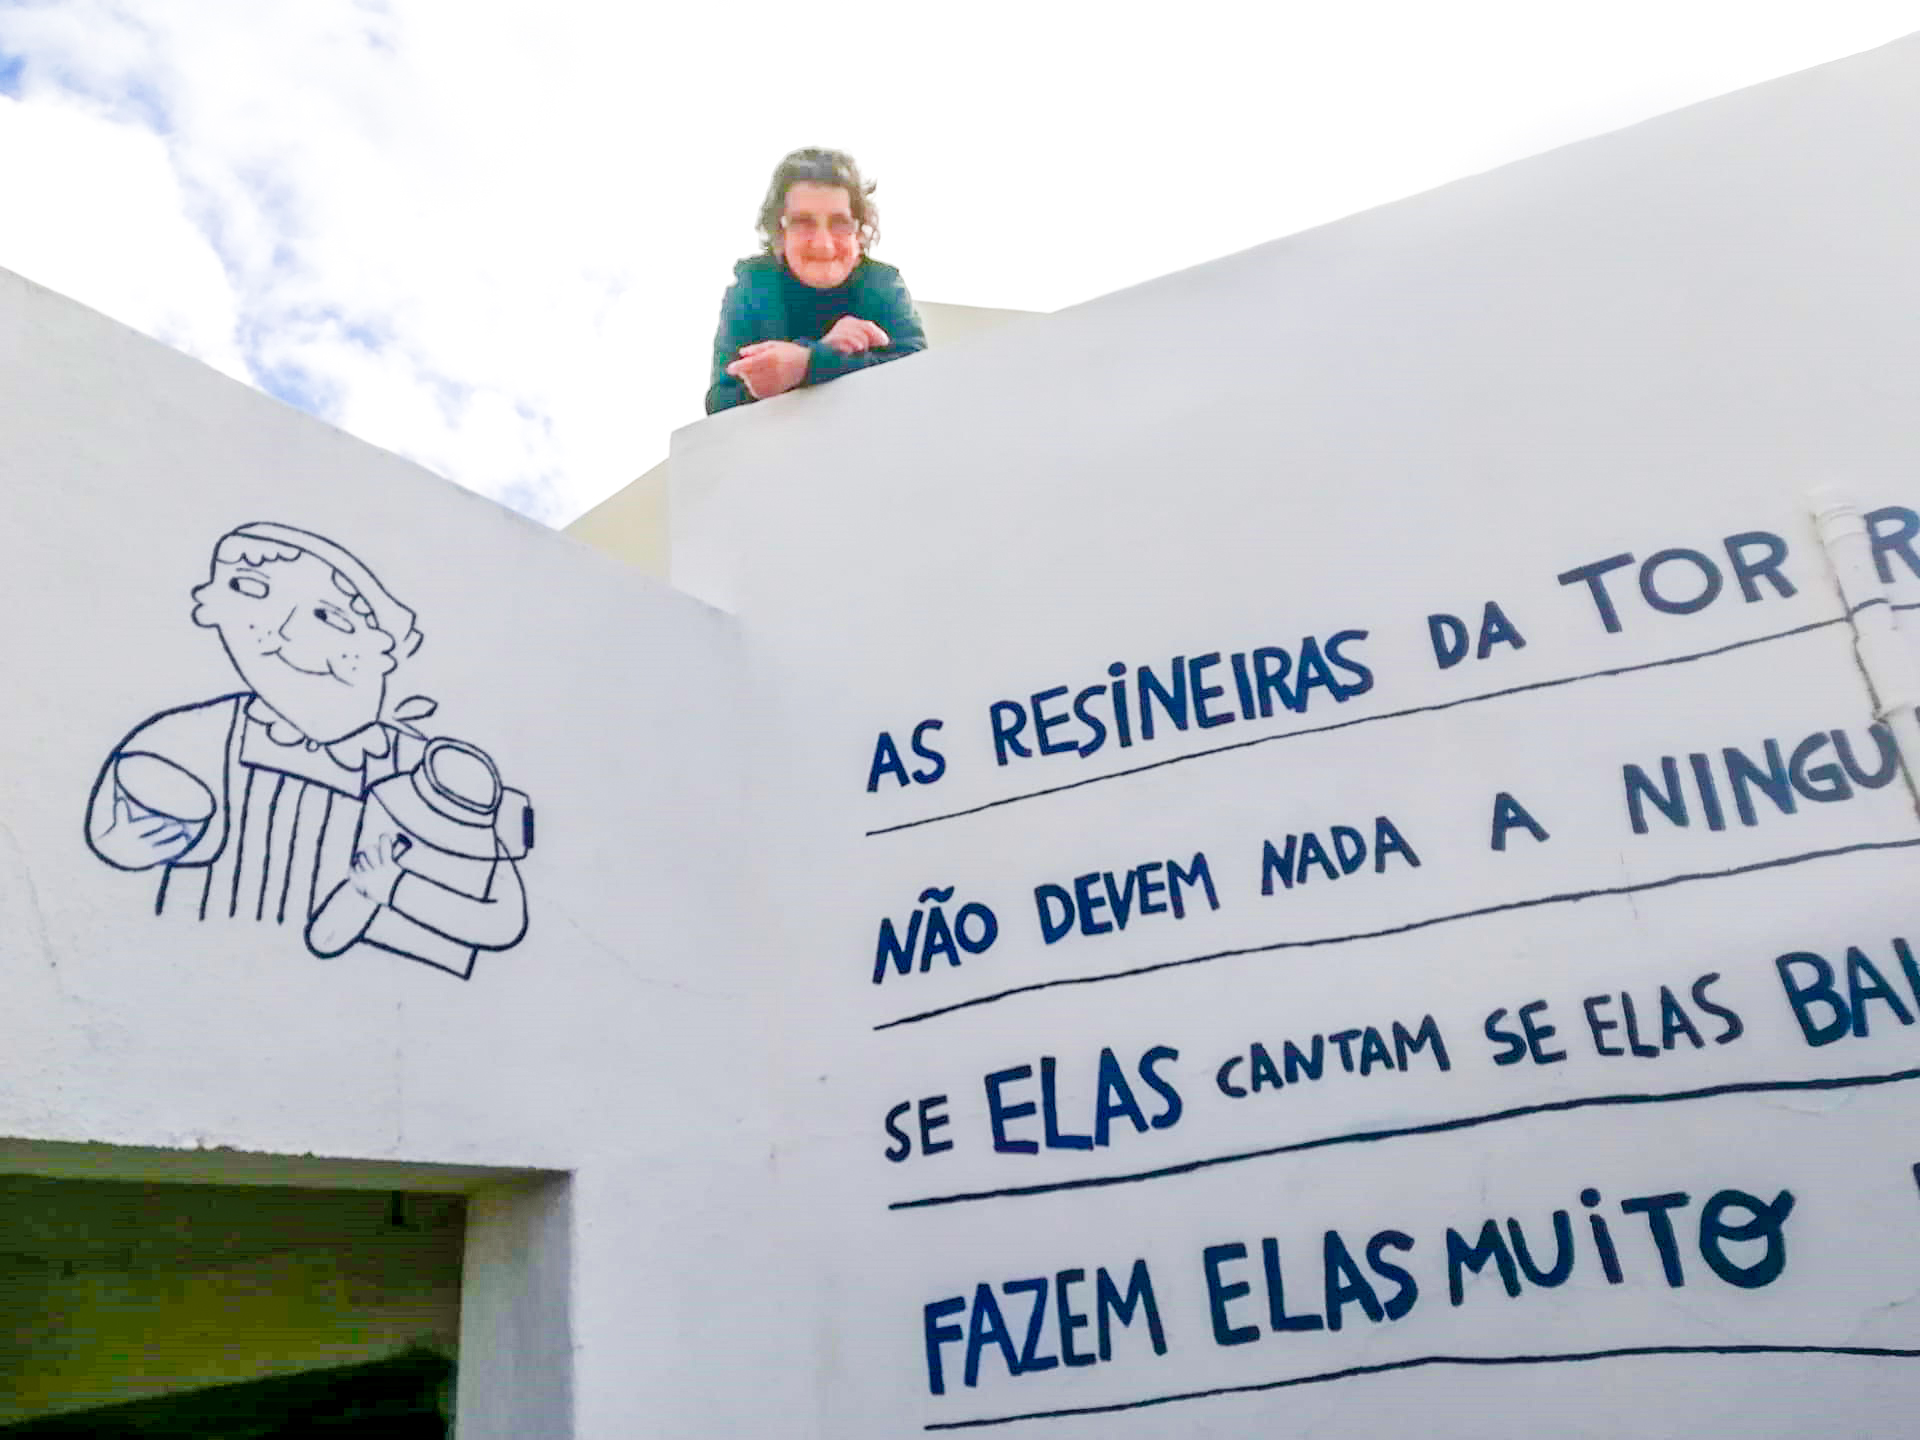 AS RESINEIRAS DA TOR R
NÃO DEVEM NADA A NINGU
SE ELAS CANTAM SE ELAS BAI
FAZEM ELAS MUITO